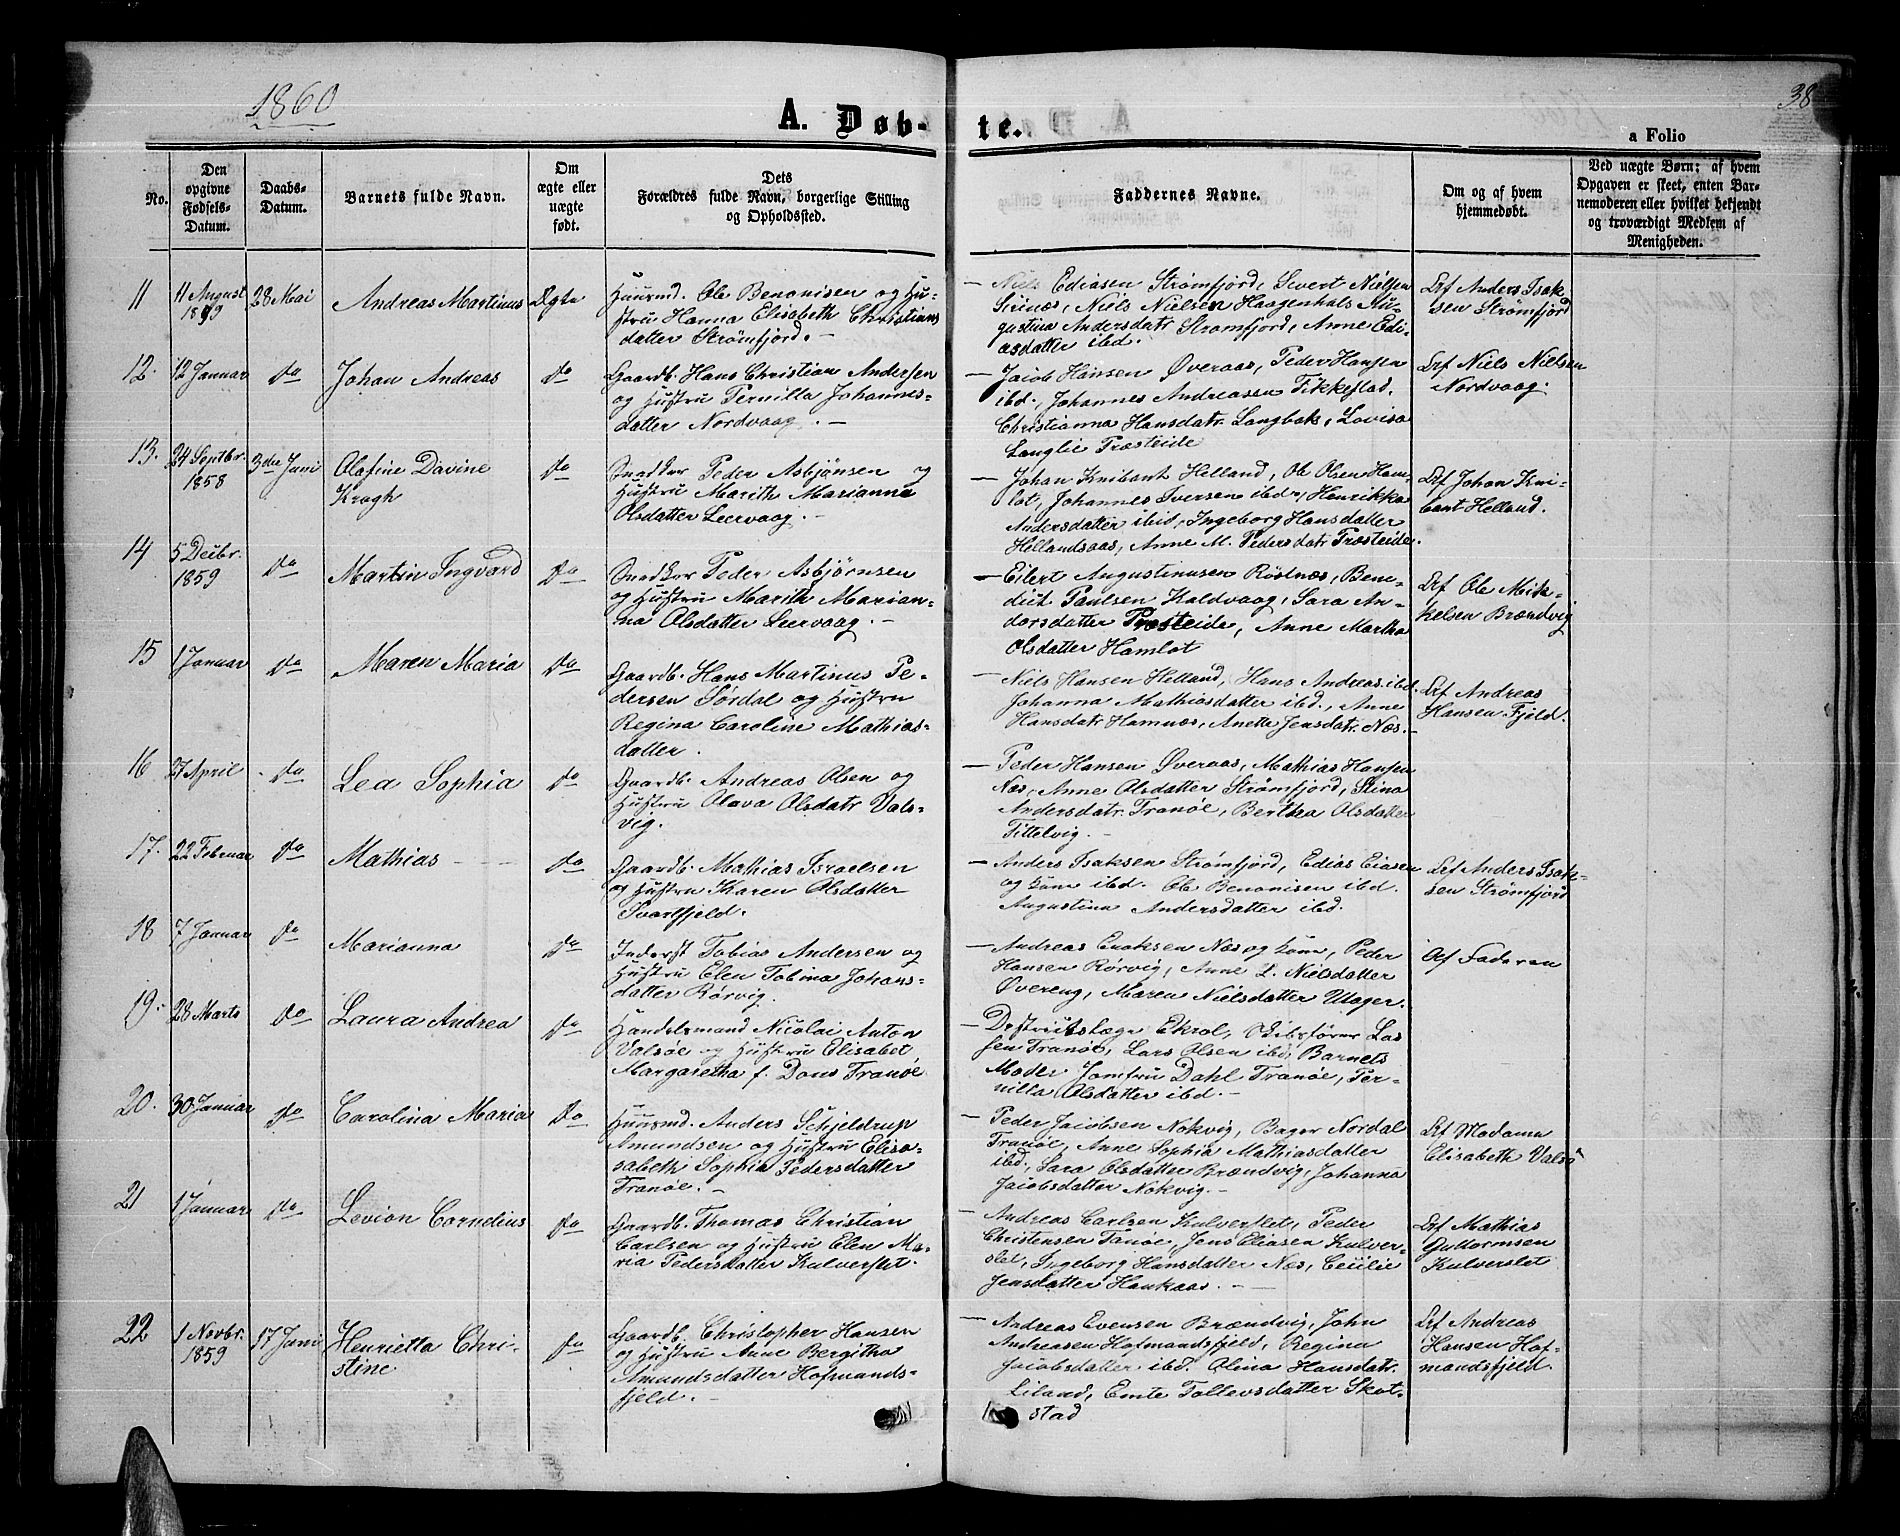 1860
A. Døb-
te.
38
a Folio
No.
Den
opgivne
Fødsels-
Datum.
Daabs-
Datum.
Barnets fulde Navn.
Om
ægte eller
uægte
født.
Dets
Forældres fulde Navn, borgerlige Stilling
og Opholdssted.
Faddernes Navne.
Om og af hvem
hjemmedøbt.
Ved uægte Børn: af hvem
Opgaven er skeet, enten Bar-
nemoderen eller hvilket bekjendt
og troværdigt Medlem af
Menigheden.
11
11 August
1859
28 Mai
Andreas Martinus
Ægte
Huusmd. Ole Benonisen og Hu-
stru Hanna Elisabeth Christians
datter Strømfjord. –
– Niels Ediasen Strømfjord, Sivert Nielsen
Niels Nielsen Haagenhals Au-
gustina Andersdatr Strømfjord, Anne Edi-
asdatter ibd.
Af Anders Isak-
sen Strømfjord
12.
12 Januar
do
Johan Andreas
do
Gaardb. Hans Christian Andersen
og Hustru Pernilla Johannes-
datter Nordvaag. –
– Jacob Hansen Øveraas, Peder Hansen
ibd., Johannes Andreassen Fikkestad,
Christianna Hansdatr. Langbak, Lovisa
Langlie Præsteide
Af Niels Nielsen
Nordvaag.
13.
24 Septbr.
1858
3die Juni
Olafine Davine
Kragh
do
Peder Asbjønsen og
Hustru Marith Marianna
Olsdatter Leervaag. –
– Johan Knibant Helland, Ole Olsen Ham-
lot, Johannes Iversen ibd., Henrikka
Andersdatter ibid, Ingeborg Hansdatter
Hellandsaas, Anne M. Pedersdatr Præsteide.
Af Johan Kni-
bant Helland.
14
5 Decbr.
1859
do
Martin Ingvard
do
Peder Asbjørnsen
og Hustru Marith Marian-
na Olsdatter Leervaag. –
– Eilert Augustinusen Røstnæs, Bene-
dict Paulsen Kaldvaag, Sara An-
dersdatter Præsteide, Anne Martha
Olsdatter Hamlot
Af Ole Mika-
kelsen Brændvig
15
1 Januar
do
Maren Maria
do
Gaardb. Hans Martinus Pe-
dersen Sørdal og Hustru
Regina Caroline Mathias-
datter.
– Niels Hansen Helland, Hans Andreas. ibd.
Johanna Mathiasdatter ibd., Anne
Hansdatr. Hamnæs, Anette Jensdatr. Næs. –
Af Andreas
Hansen Fjeld.
16
27 April
do
Lea Sophia
do
Gaardb. Andreas Olsen og
Hustru Olava Olsdatr Vals-
vig.
– Peder Hansen Øveraas, Mathias Hansen
Næs, Anne Olsdatter Strømfjord, Stina
Andersdatr. Tranøe, Bertha Olsdatter
Fittelvig. –
17.
22 Februar
do
Mathias
do
Gaardb. Mathias Israelsen
og Hustru Karen Olsdatter
Svartfjeld.
– Anders Isaksen Strømfjord, Edias Eiasen
og kone ibd. Ole Benonisen ibd.
Augustina Andersdatter ibd.
Af Anders Isak-
sen Strømfjord
18
7 Januar
do
Marianna
do
Inderst Tobias Andersen og
Hustru Elen Tobina Johans-
datter Rørvig.
– Andreas Enoksen Næs og kone, Peder
Hansen Rørvig, Anne L. Nielsdatter
Øvereng, Maren Nielsdatter Ulager.
Af Faderen
19.
28 Marts
do
Laura Andrea
do
Handelsmand Nicolai Anton
Valsøe og Hustru Elisabet
Margaretha f. Dons Tranøe
– Destrictslæge Ekrol, Bibefører Las
sen Tranøe, Lars Olsen ibd, Barnets
Moder Jomfru Dahl Tranøe, Per-
nilla Olsdatter ibd. –
20.
30 Januar
do
Carolina Maria
do
Huusmd. Anders Schjeldrup
Amundsen og Hustru Elisa-
sabeth Sophia Pedersdatter
Tranøe. –
– Peder Jacobsen Nokvig, Bager Nordal
Tranøe, Anne Sophia Mathiasdatter
ibd, Sara Olsdatter Brændvig, Johanna
Jacobsdatter Nokvig. –
Af Madame
Elisabeth Valsø
21
1 Januar
do
Levion Cornelius
do
Gaardb. Thomas Christian
Carlsen og Hustru Elen Ma-
ria Pedersdatter Kulverslet.
– Andreas Carlsen Kulverslet, Peder
Christensen Tanøe, Jens Eliasen Kulver-
slet, Ingeborg Hansdatter Næs, Cecilie
Jensdatter Haukaas. –
Af Mathias
Guttormsen
Kulverslet
22
1 Novbr.
1859
17 Juni
Henrietta Chri-
stine
do
Gaardb. Christopher Hansen
og Hustru Anne Bergitha
Amundsdatter Hofmands-
fjeld. –
– Andreas Evensen Brændvig, John
Andreasen Hofmandsfjeld, Regina
Jacobsdatter ibd. Olina Hansdatr.
Liland, Emte Tollevsdatter Skot-
stad
Af Andreas
Hansen Hof-
mandsfjeld.